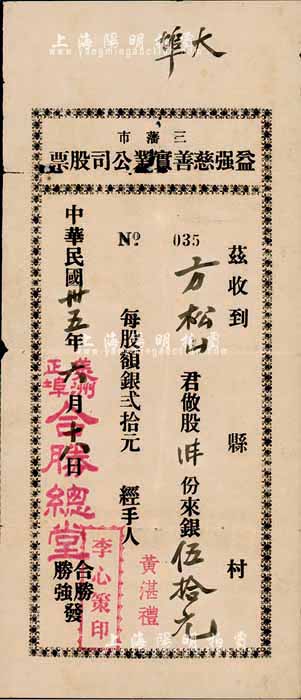 上海陽明拍賣
www.yangmingauction.com
大埠
三藩市
益强慈善實業公司股票
茲收到 縣 村
方松山君做股 份來銀伍拾元
№ 035
每股額銀弍拾元 經手人
黃湛禮
中華民國卅五年六月十八日
美洲正埠合勝總堂
李心策印
合勝
勝強發
上海陽明拍賣
www.yangmingauction.com